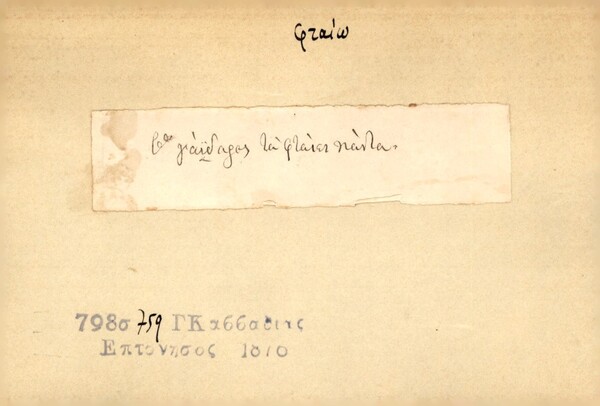 φταίω
γάϊδαρος τα φταίει πάντα.
798σ 759 ΓΚασσαδιας
Επτονησος 1870